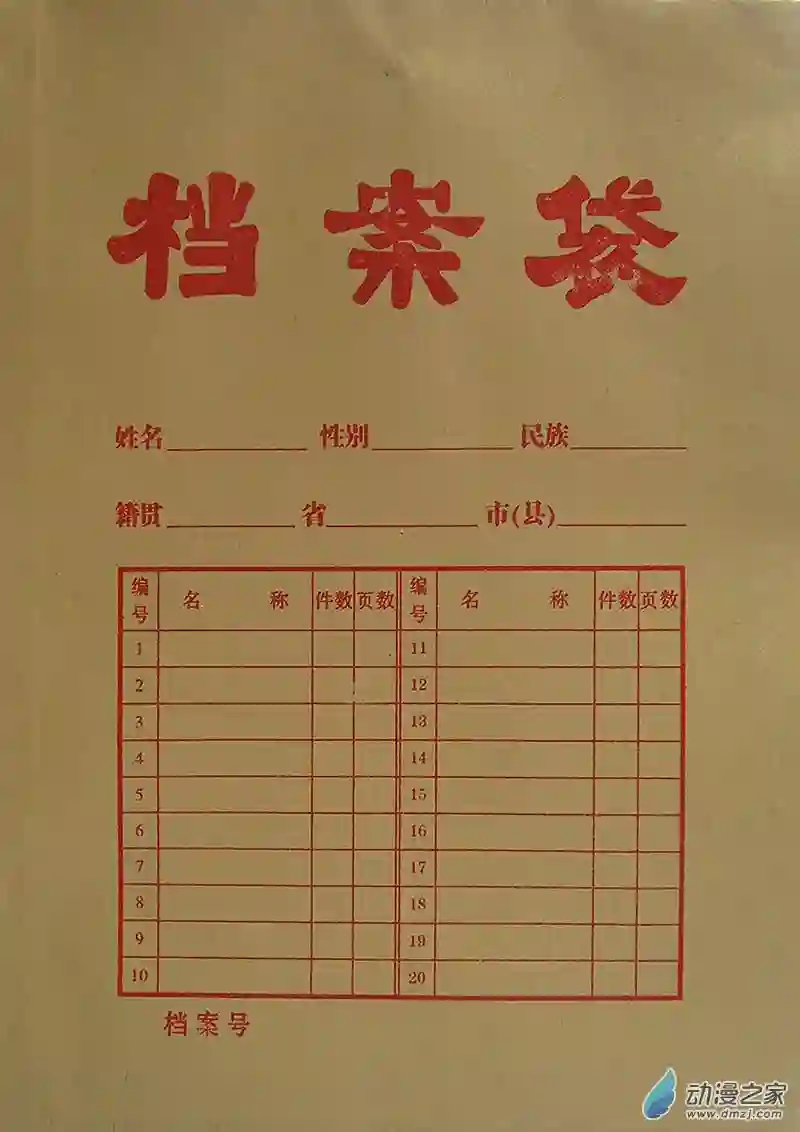 档案袋
姓名 性别 民族
籍贯 省 市(县)
编号 名称 件数 页数 编号 名称 件数 页数
1 11
2 12
3 13
4 14
5 15
6 16
7 17
8 18
9 19
10 20
档案号
动漫之家
www.dmzj.com